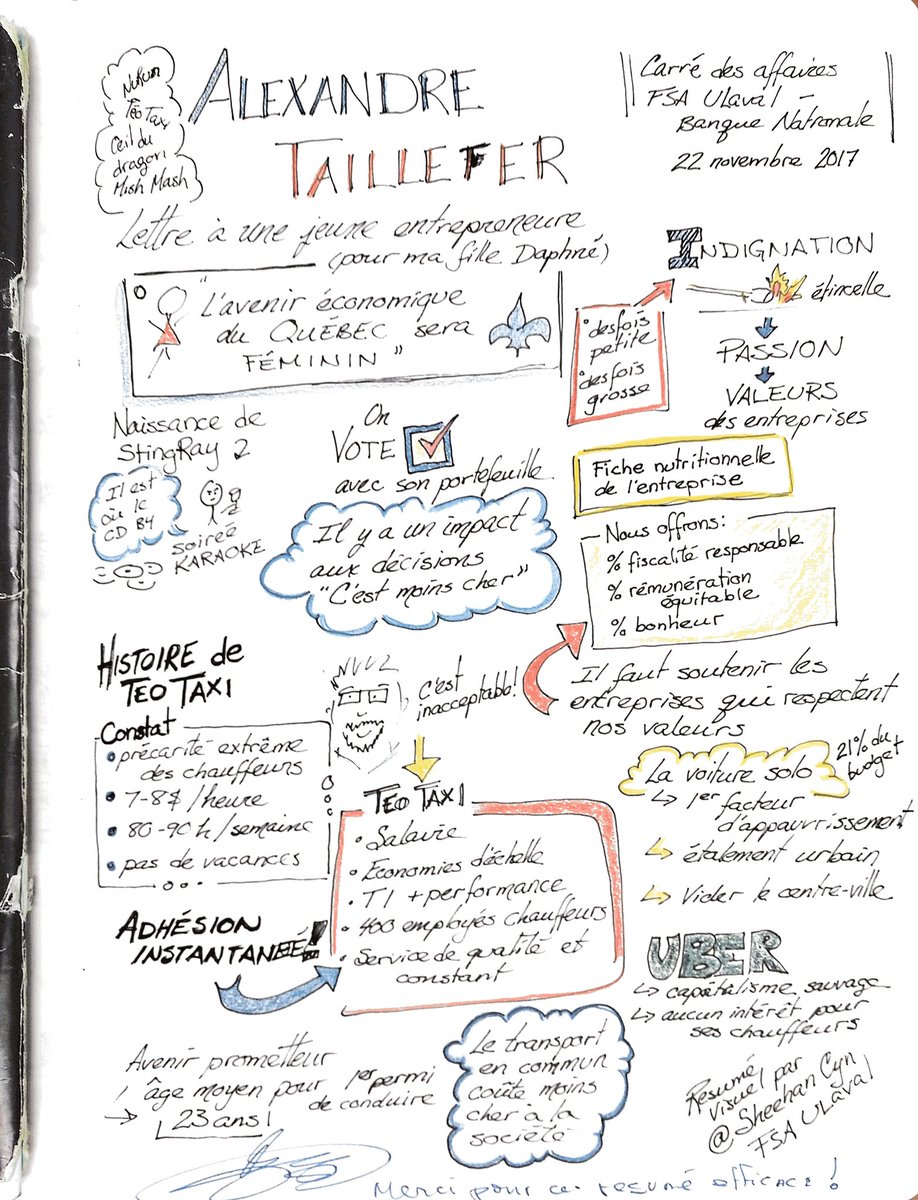 Nukun
Téo Taxi
Œil du
dragon
Mish Mash
ALEXANDRE
TAILLEFER
Carré des affaires
FSA ULaval –
Banque Nationale
22 novembre 2017
Lettre à une jeune entrepreneure
(pour ma fille Daphné)
"L'avenir économique
du QUÉBEC sera
FÉMININ"
INDIGNATION
étincelle
• desfois
petite
• desfois
grosse
PASSION
VALEURS
des entreprises
Naissance de
StingRay 2
Il est
où le
CD B4
soirée
KARAOKE
On
VOTE
avec son portefeuille
Il y a un impact
aux décisions
"C'est moins cher"
Fiche nutritionnelle
de l'entreprise
Nous offrons:
% fiscalité responsable
% rémunération
équitable
% bonheur
Il faut soutenir les
entreprises qui respectent
nos valeurs
HISTOIRE de
TEO TAXI
Constat
• précarité extrême
des chauffeurs
• 7-8$/heure
• 80-90h/semaine
• pas de vacances
C'est
inacceptable!
TEO TAXI
• Salaire
• Économies d'échelle
• TI + performance
• 400 employés chauffeurs
• Service de qualité et
constant
ADHÉSION
INSTANTANÉE!
La voiture solo
21% du
budget
↳ 1er facteur
d'appauvrissement
↳ étalement urbain
↳ Vider le centre-ville
UBER
↳ capitalisme sauvage
↳ aucun intérêt pour
ses chauffeurs
Avenir prometteur
âge moyen pour 1er permi
de conduire
→ 23 ans!
Le transport
en commun
coûte moins
cher à la
société
Resumé
visuel par
@Sheehan Cyn
FSA ULaval
Merci pour ce résumé efficace!